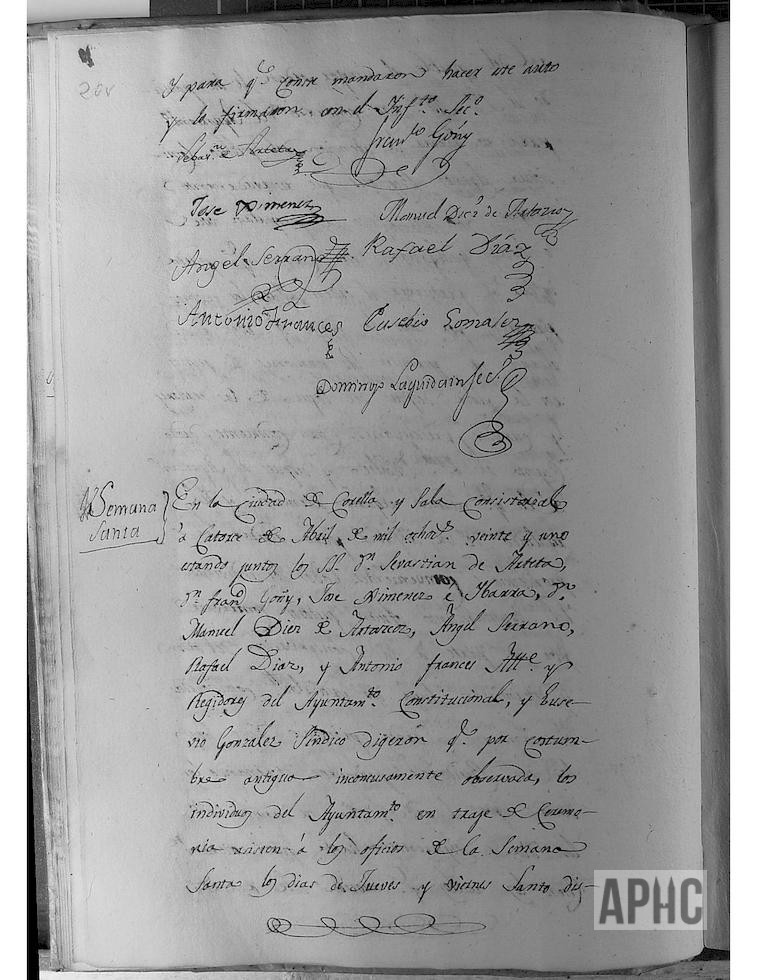 208
Y para q.e conste mandaron hacer este auto
y lo firmaron con el Inf.to Sec.o
Sebas.n de Arteta
Fran.co Goñy
Jose Ximenez
Manuel Diez de Artazcoz
Angel Serrano
Rafael Díaz
Antonio Frances
Eusebio Gonzalez
Domingo Laquidain Sec.o
Semana
Santa
En la Ciudad de Corella y Sala Consistorial
à Catorce de Abril de mil ochoc.s veinte y uno
estando juntos los SS. D.n Sevastian de Arteta,
D.n Fran.co Goñy, Jose Ximenez e Ybarra, D.n
Manuel Diez de Artazcoz, Angel Serrano,
Rafael Diaz, y Antonio Frances Alc.e y
Regidores del Ayuntam.to Constitucional, y Euse-
vio Gonzalez Sindico digeron q.e por costum-
bre antigua inconcusamente observada, los
individuos del Ayuntam.to en traje de Ceremo-
nia asisten à los oficios de la Semana
Santa los dias de Jueves y Viernes Santo dis-
APHC